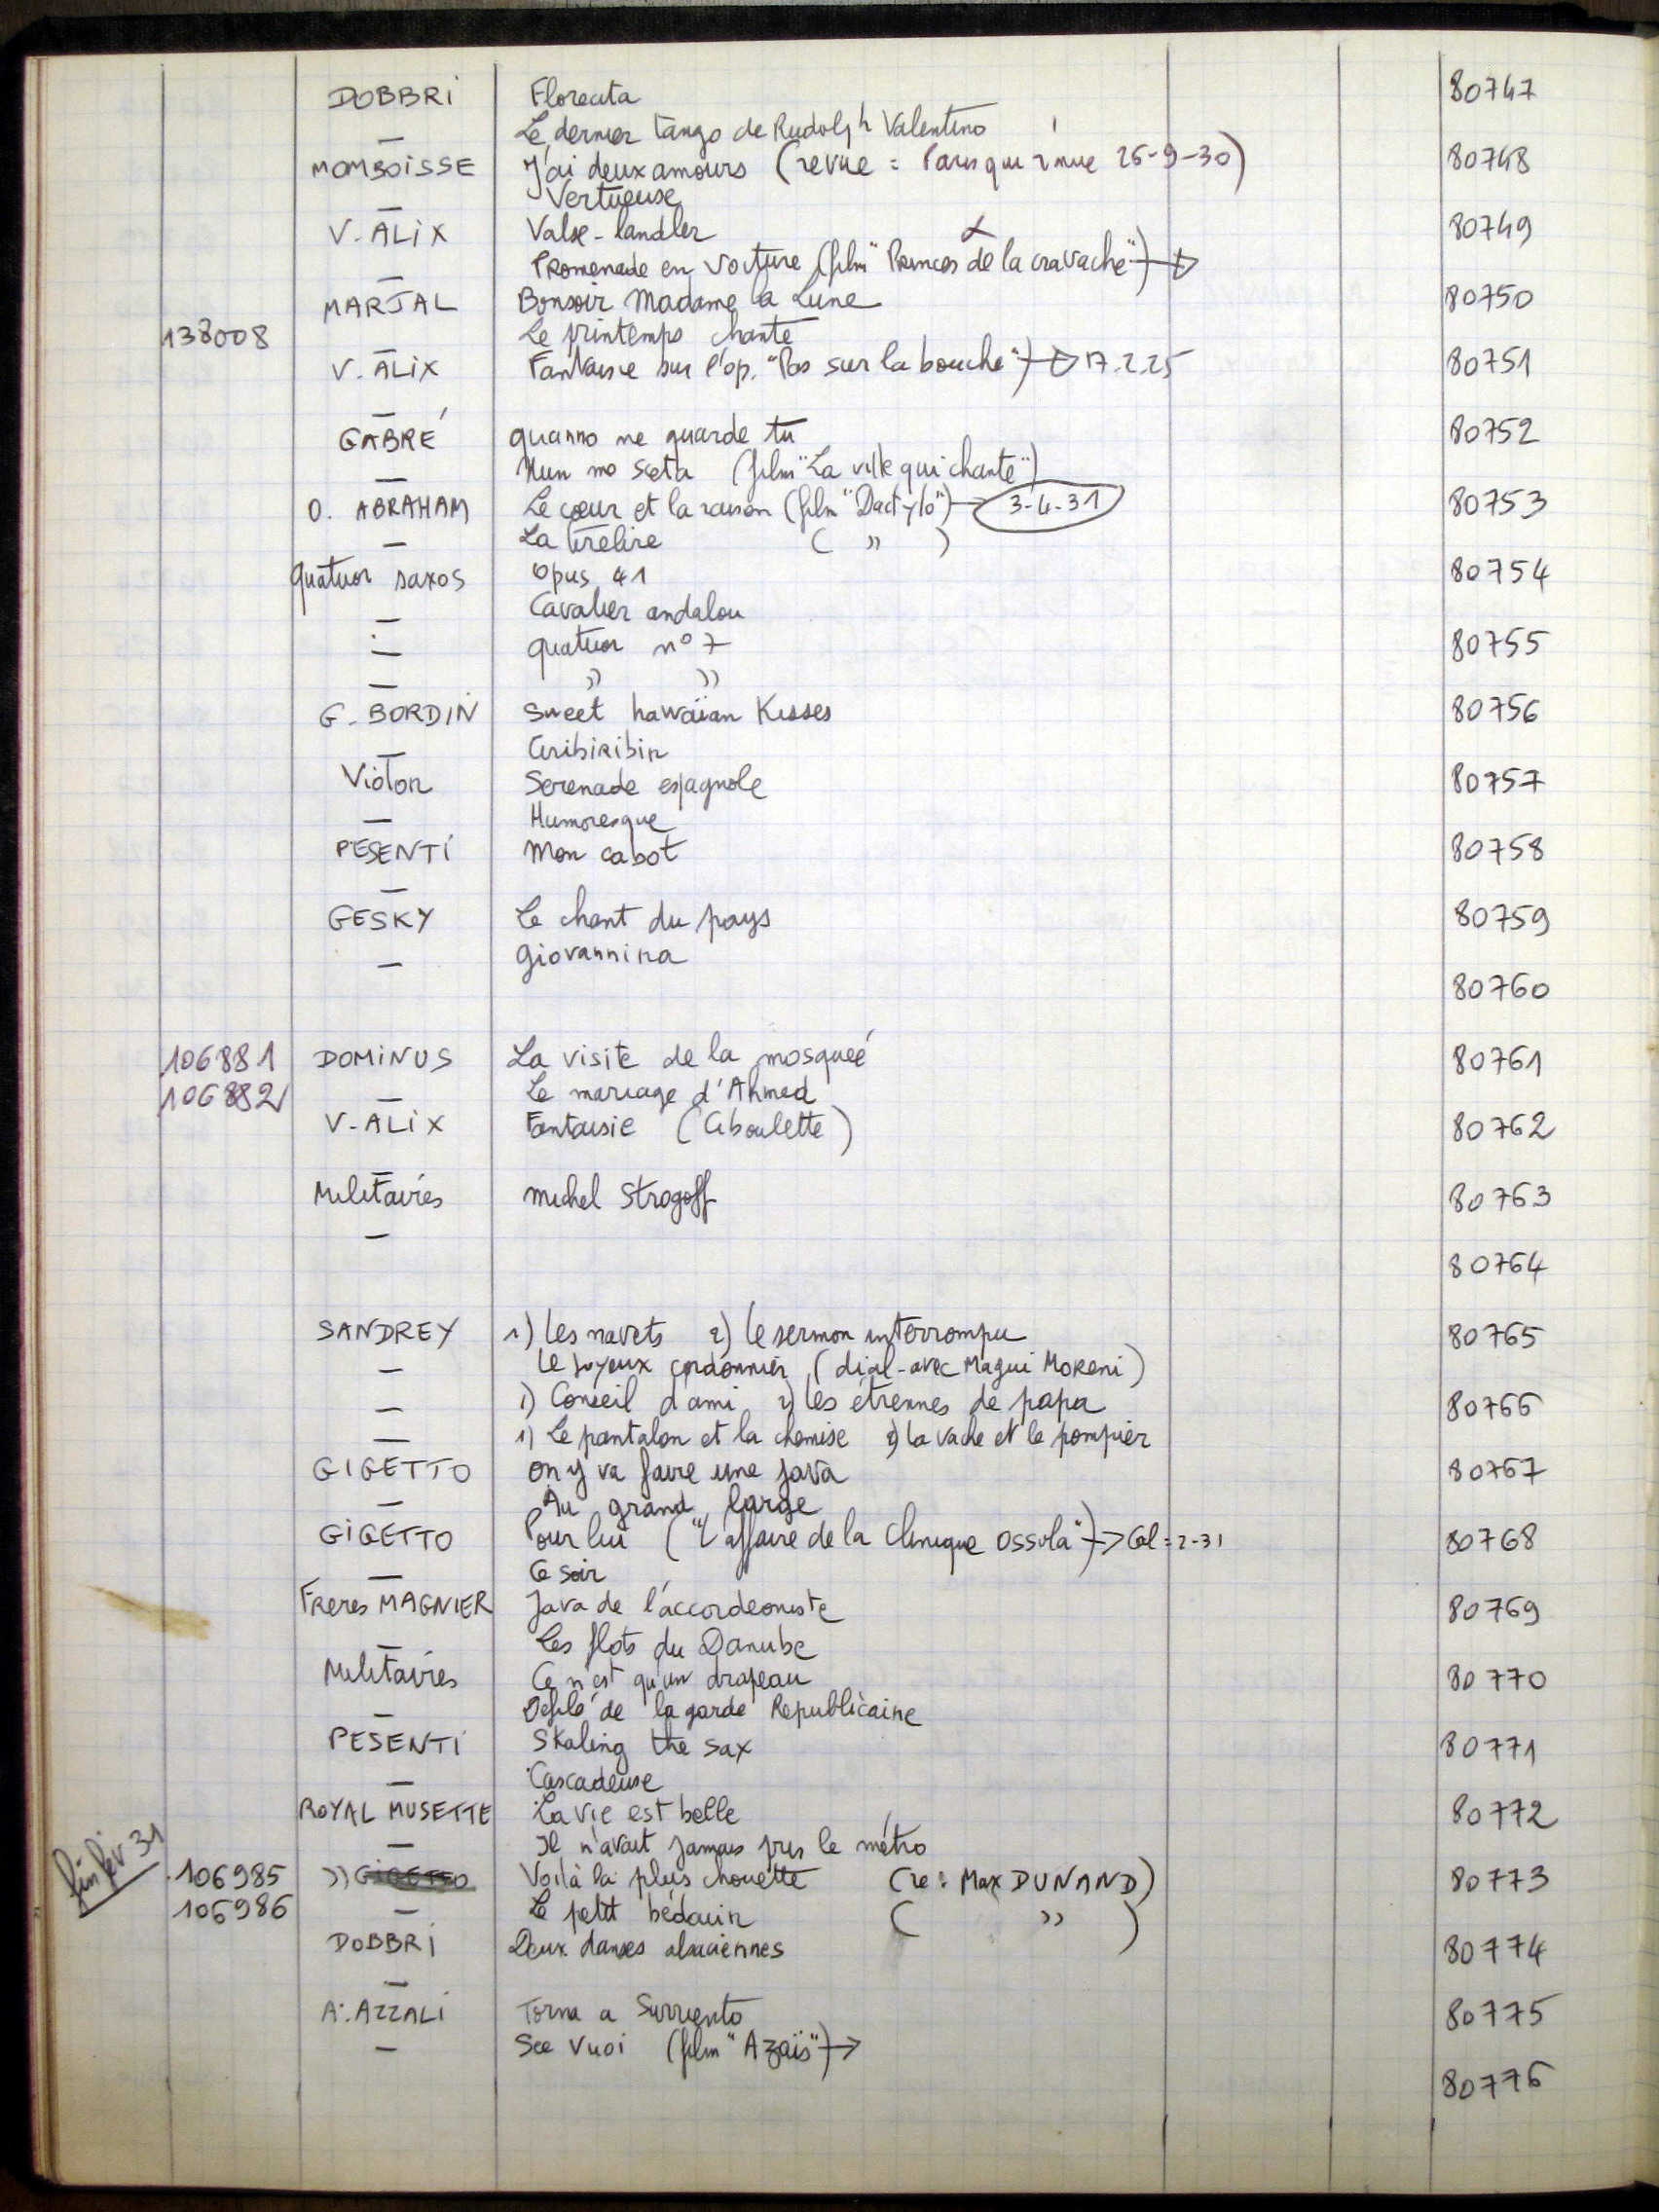 DOBBRI Floreata 80747
— Le dernier tango de Rudolph Valentino
MOMBOISSE J'ai deux amours (revue = Paris qui remue 26-9-30) 80748
— Vertueuse
V. ALIX Valse-landler 80749
— Promenade en voiture (film "Princes de la cravache") →
MARJAL Bonsoir Madame la Lune 80750
138008 — Le printemps chante
V. ALIX Fantaisie sur l'op. "Pas sur la bouche") → 17.2.25 80751
—
GABRÉ quanno me guarde tu 80752
— Nun me sceta (film "La ville qui chante")
O. ABRAHAM Le cœur et la raison (film "Dactylo") → 3-4-31 80753
— La tirelire ( " )
Quatuor saxos Opus 41 80754
— Cavalier andalou
— quatuor n° 7 80755
— " "
G. BORDIN Sweet hawaïan Kisses 80756
— Ciribiribin
Violon Serenade espagnole 80757
— Humoresque
PESENTI Mon cabot 80758
—
GESKY Le chant du pays 80759
— Giovannina
80760
106881 DOMINUS La visite de la mosqueé 80761
106882 — Le mariage d'Ahmed
V-ALIX Fantaisie (Ciboulette) 80762
—
Militaires Michel Strogoff 80763
—
80764
SANDREY 1) Les navets 2) Le sermon interrompu 80765
— Le joyeux cordonnier (dial-avec Magui Moreni)
— 1) Conseil d'ami 2) Les étrennes de papa 80766
— 1) Le pantalon et la chemise 2) La vache et le pompier
GIGETTO On y va faire une java 80767
— Au grand large
GIGETTO Pour lui ("L'affaire de la clinique Ossola") → Cal = 2-31 80768
— Ce soir
Freres MAGNIER Java de l'accordeoniste 80769
— Les flots du Danube
Militaires Ce n'est qu'un drapeau 80770
— Defilé de la garde Republicaine
PESENTI Skaling the sax 80771
— Cascadeuse
ROYAL MUSETTE La vie est belle 80772
— Il n'avait jamais pris le métro
fin fev 31 106985 " GIGETTO Voilà la plus chouette (re: Max DUNAND) 80773
106986 — Le petit bédouin ( " )
DOBBRI Deux danses alsaciennes 80774
—
A. AZZALI Torna a Surriento 80775
— See Vuoi (film "Azaïs") →
80776